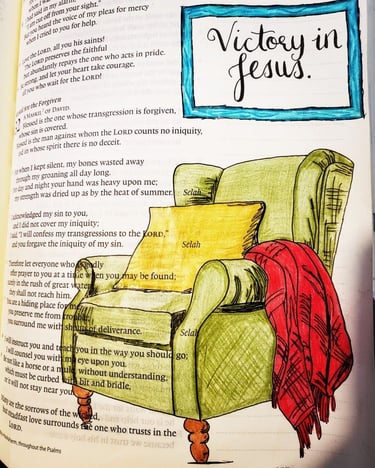 in my alarm,
cut off from your sight."
you heard the voice of my pleas for mercy
when I cried to you for help.
the LORD, all you his saints!
The LORD preserves the faithful
but abundantly repays the one who acts in pride.
strong, and let your heart take courage,
all you who wait for the LORD!
Victory in
Jesus.
the Forgiven
OF DAVID.
is the one whose transgression is forgiven,
whose sin is covered.
is the man against whom the LORD counts no iniquity,
and in whose spirit there is no deceit.
when I kept silent, my bones wasted away
through my groaning all day long.
day and night your hand was heavy upon me;
my strength was dried up as by the heat of summer. Selah
acknowledged my sin to you,
and I did not cover my iniquity;
said, "I will confess my transgressions to the LORD,"
and you forgave the iniquity of my sin. Selah
Therefore let everyone who is godly
offer prayer to you at a time when you may be found;
surely in the rush of great waters,
they shall not reach him.
You are a hiding place for
you preserve me from
you surround me with shouts of deliverance. Selah
I will instruct you and teach you in the way you should go;
I will counsel you with my eye upon you.
Be not like a horse or a mule, without understanding,
which must be curbed with bit and bridle,
or it will not stay near you.
Many are the sorrows of the wicked,
but steadfast love surrounds the one who trusts in the
LORD.
throughout the Psalms